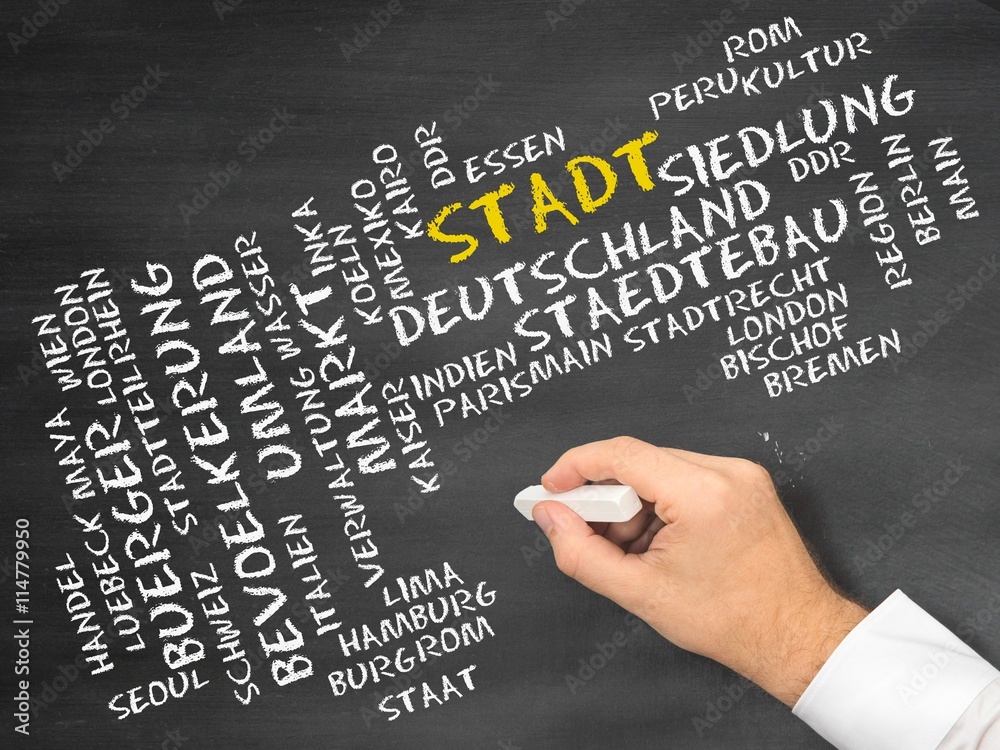 ROM
PERU KULTUR
ESSEN
STADT
SIEDLUNG
DDR
DDR
KAIRO
MEXIKO
DEUTSCHLAND
STAEDTEBAU
STADTRECHT
REGION
BERLIN
MAIN
LONDON
BISCHOF
BREMEN
INDIEN
PARIS MAIN
INKA
KOELN
MARKT
KAISER
WASSER
VERWALTUNG
UMLAND
ITALIEN
BEVOELKERUNG
SCHWEIZ
BUERGERUNG
BUERGER
STADTTEIL RHEIN
LONDON
WIEN
MAYA
LUEBECK
HANDEL
SEOUL
LIMA
HAMBURG
BURG ROM
STAAT
Adobe Stock | #114779950